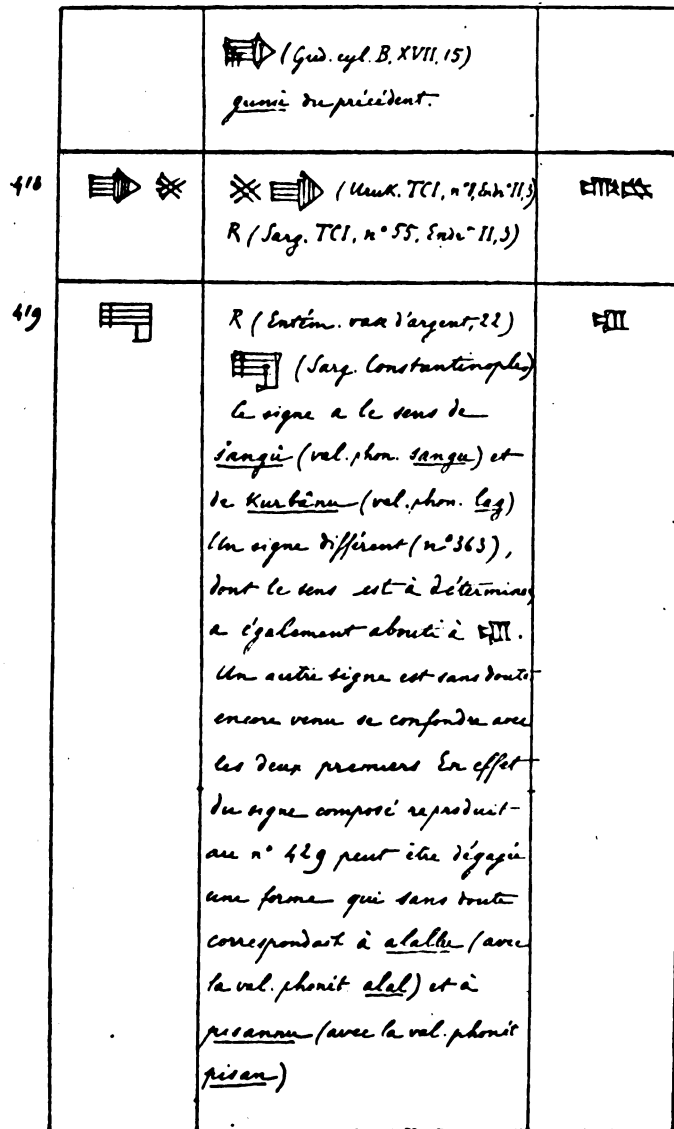 (Gud. cyl. B, XVII, 15)
gunû du précédent.
418
(Uruk. TCI, n° 1, Endr II, 3)
R (Sarg. TCI, n° 55, Endr II, 3)
419
R (Entém. vase d'argent, 22)
(Sarg. Constantinople)
Ce signe a le sens de
šangû (val. phon. sangu) et
de Kurbânu (val. phon. lag)
Un signe différent (n° 363),
dont le sens est à déterminer,
a également abouti à
Un autre signe est sans doute
encore venu se confondre avec
les deux premiers En effet
du signe composé reproduit
au n° 429 peut être dégagée
une forme qui sans doute
correspondait à alallu (avec
la val. phonét alal) et à
pisannu (avec la val. phonét
pisan)